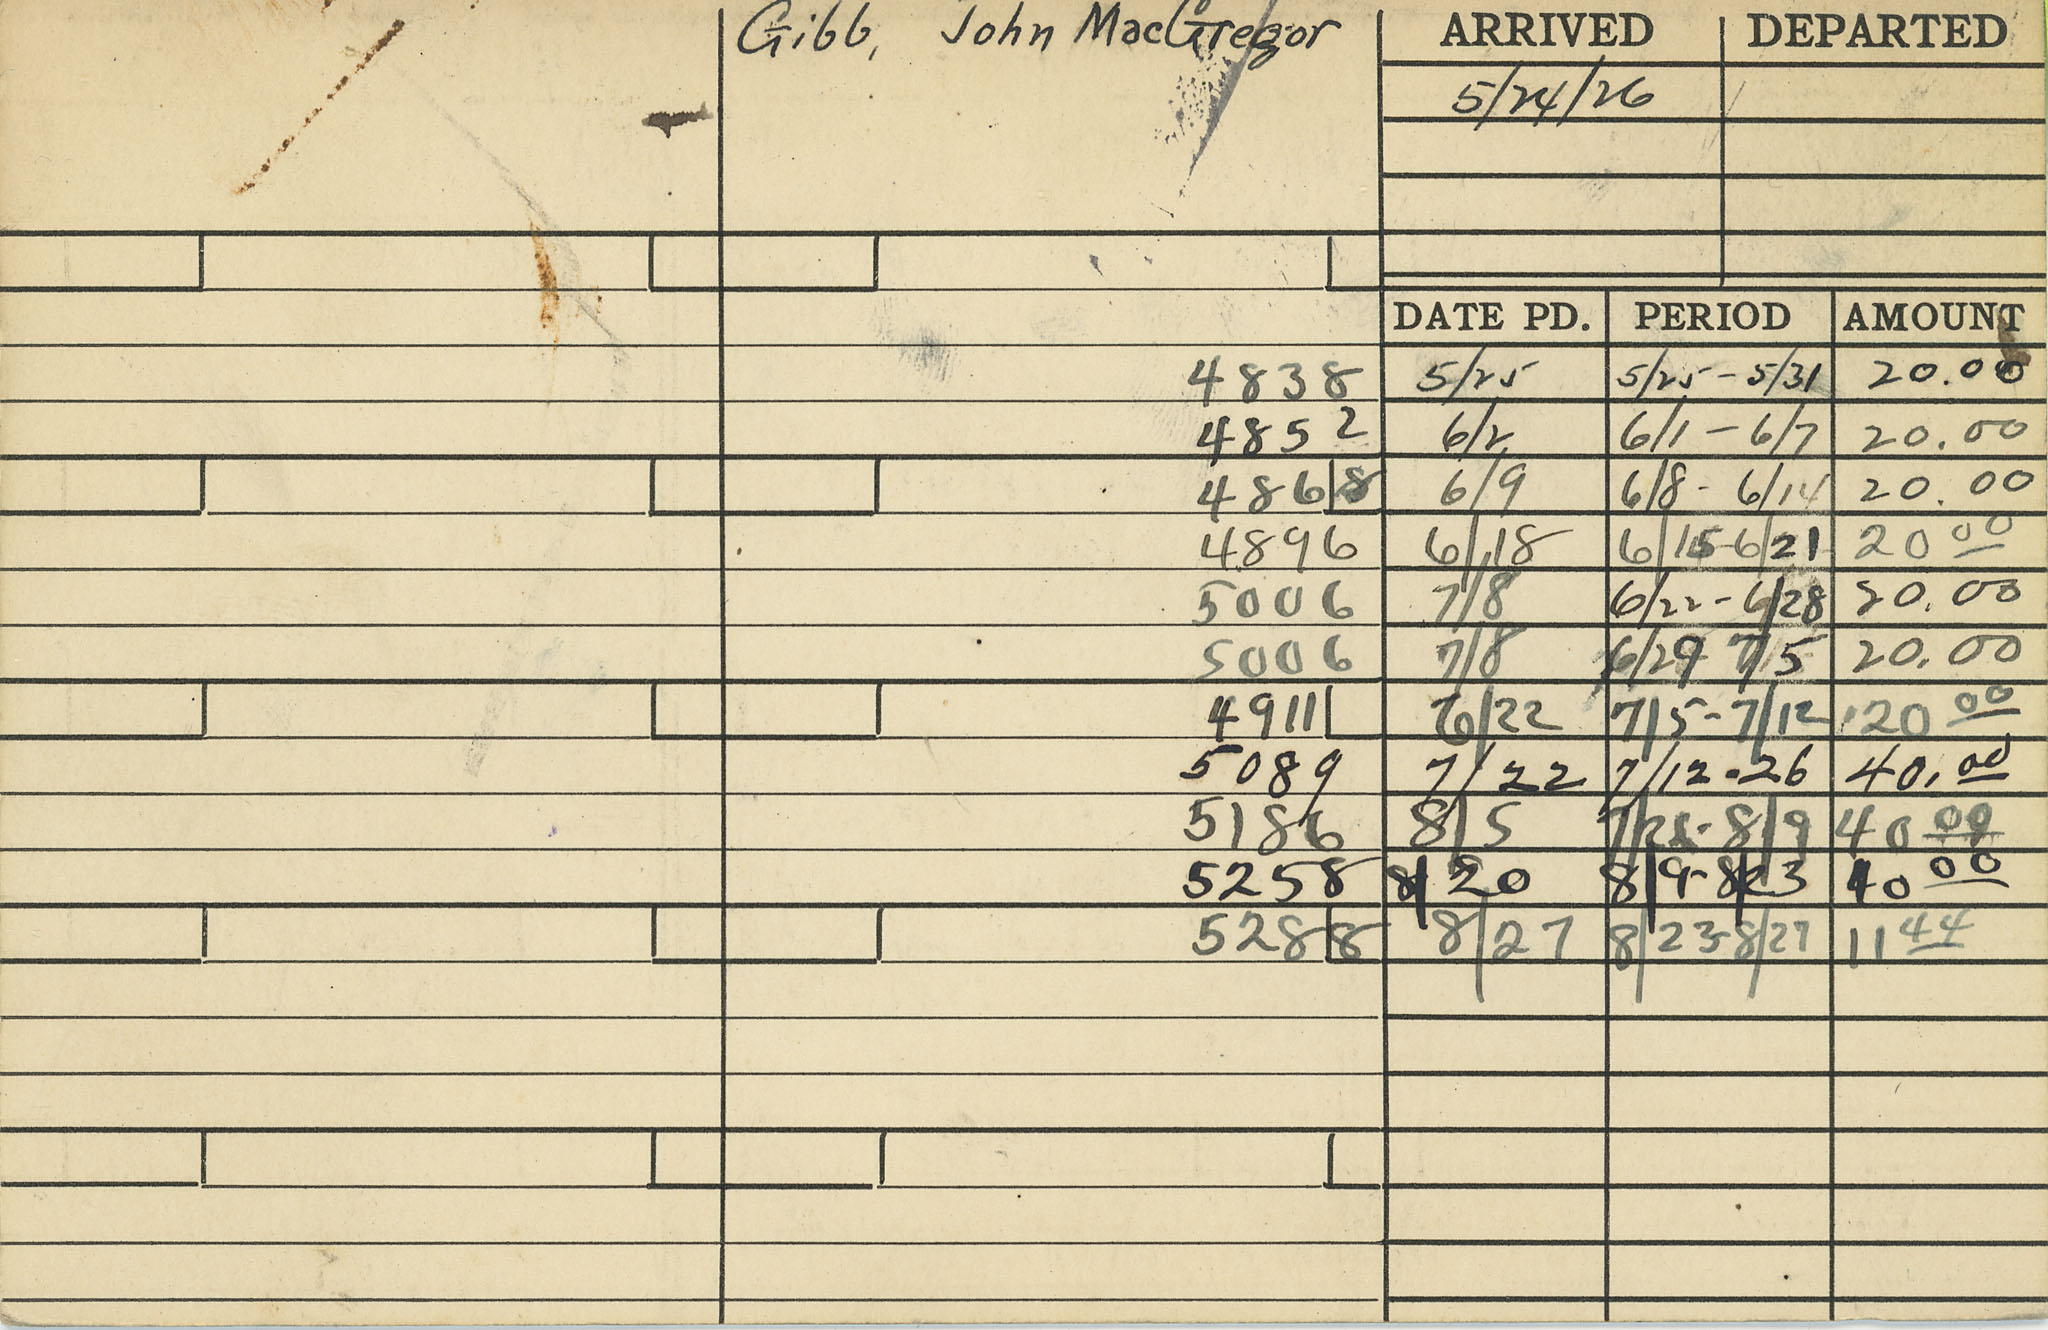 Gibb, John MacGregor ARRIVED DEPARTED
5/24/26
DATE PD. PERIOD AMOUNT
4838 5/25 5/25-5/31 20.00
4852 6/2 6/1-6/7 20.00
4868 6/9 6/8-6/14 20.00
4896 6/18 6/15-6/21 20 00
5006 7/8 6/22-6/28 20.00
5006 7/8 6/29 7/5 20.00
4911 6/22 7/5-7/12 20 00
5089 7/22 7/12-26 40.00
5186 8/5 8/9 40 00
5258 8/20 8/9-8/23 40 00
5288 8/27 8/23-8/27 11 44